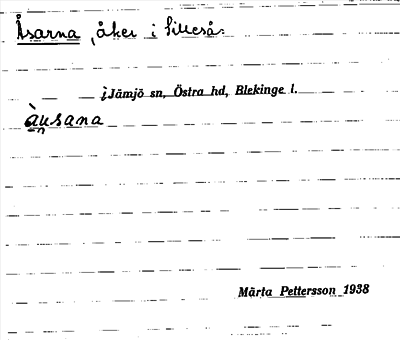 Åsarna , åker i Silleså.
i Jämjö sn, Östra hd, Blekinge l.
àu̯sana
Märta Pettersson 1938